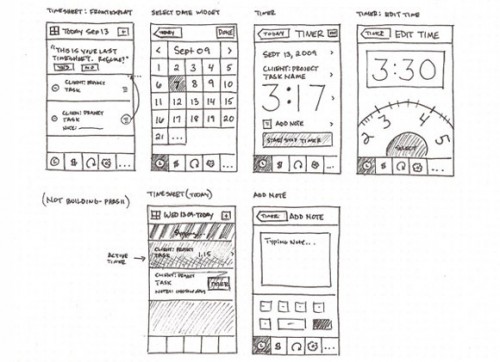 TIMESHEET: FRONT/EMPTY
TODAY SEP 13
"THIS IS YOUR LAST
TIMESHEET. RESUME?"
YES NO
CLIENT: PROJECT
TASK
CLIENT: PROJECT
TASK
NOTE:
SELECT DATE WIDGET
TODAY DONE
< SEPT 09 >
1 2 3 4 5
6 7 8 9 10
11 12 13 14 15
16 17 18 19 20
21 ...
TIMER
TODAY TIMER
SEPT 13, 2009
CLIENT: PROJECT
TASK NAME
3:17
ADD NOTE
START/STOP TIMER
TIMER: EDIT TIME
TIMER EDIT TIME
3:30
2 3 4 5
SELECT
(NOT BUILDING - PHASE II)
TIMESHEET (TODAY)
WED 13.09-TODAY
ACTIVE
TIMER
CLIENT: PROJECT
TASK 1.15
CLIENT: PROJECT
TASK
ADD NOTE
TIMER ADD NOTE
TYPING NOTE...